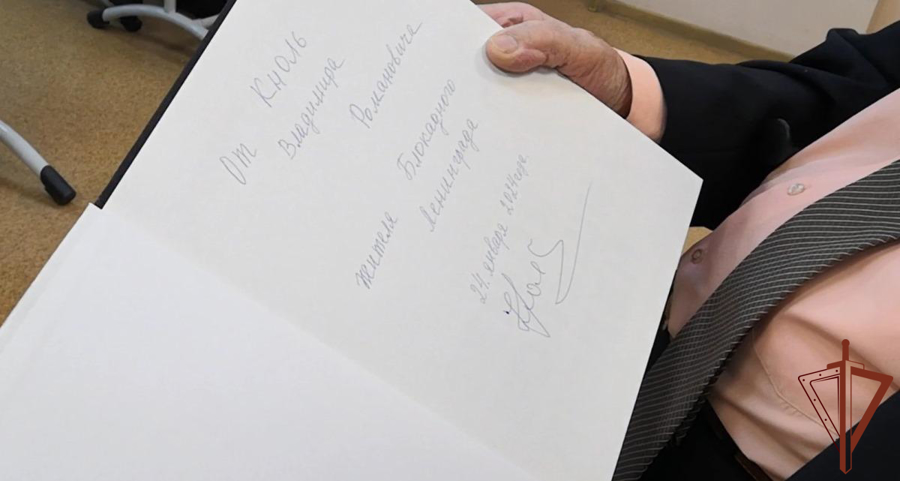 От Кноль
Владимира
Романовича
жителя Блокадного
Ленинграда
24 января 2024 года